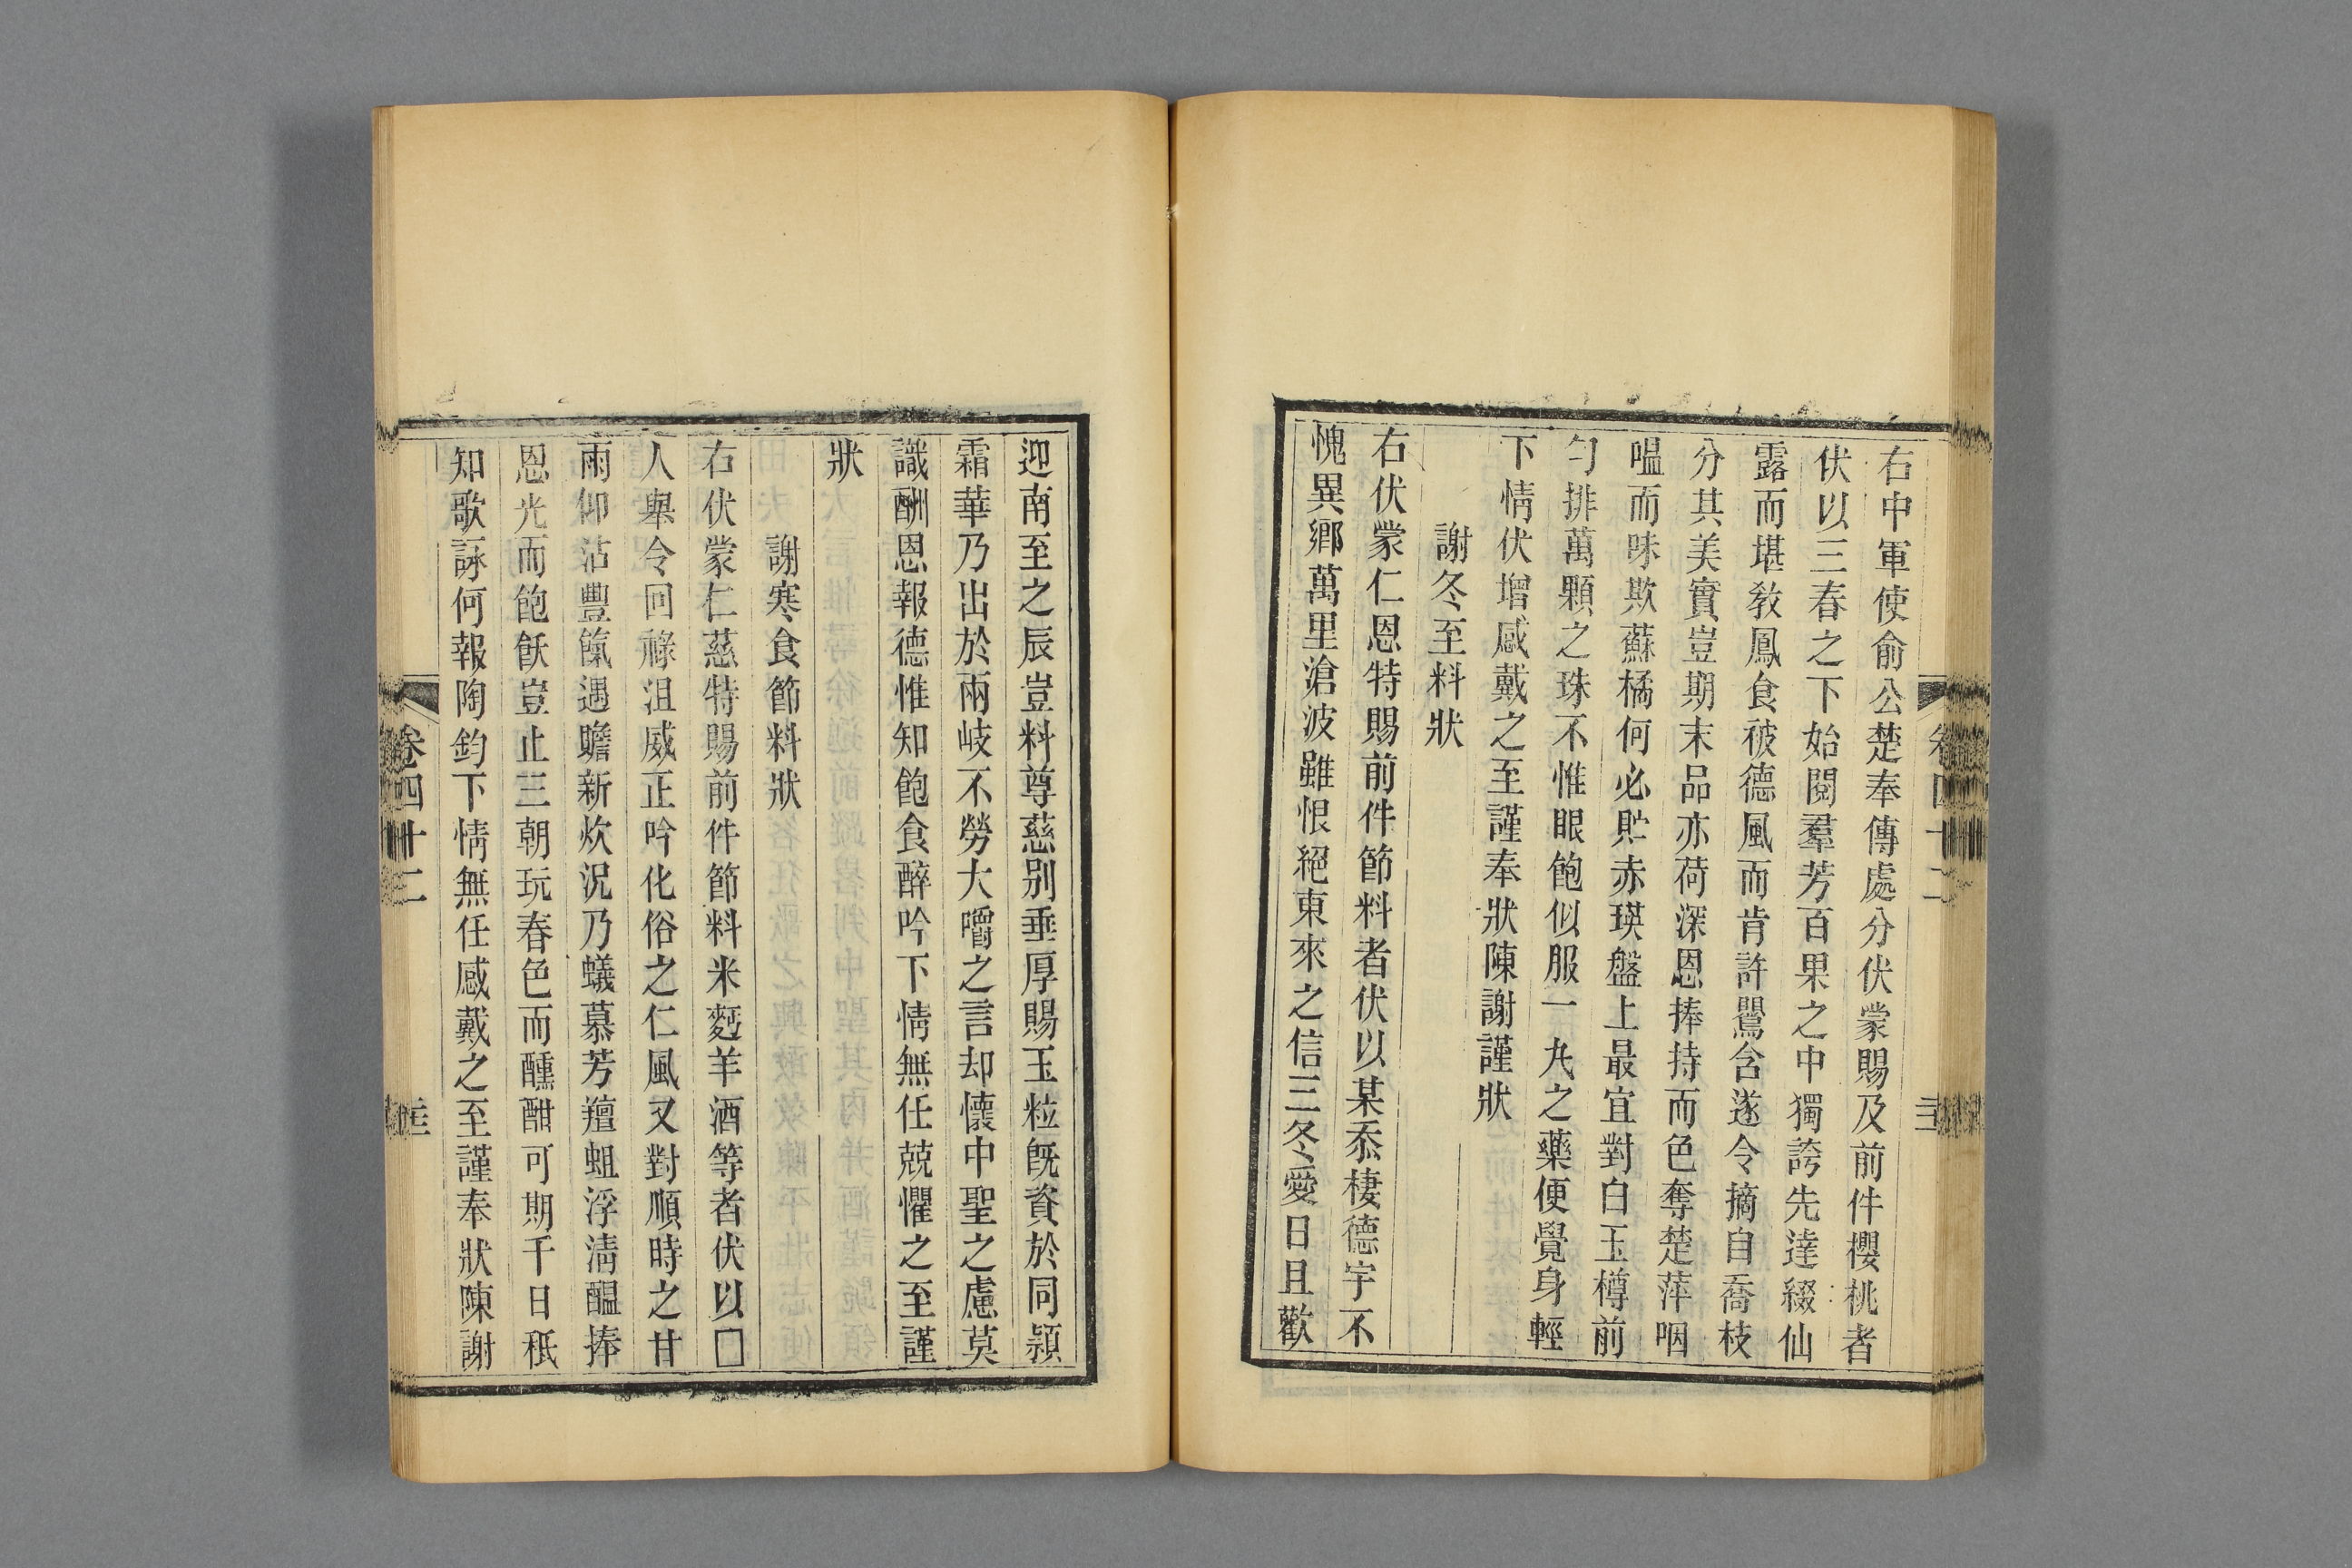 右中軍使俞公楚奉傳處分伏蒙賜及前件櫻桃者
伏以三春之下始閱羣芳百果之中獨誇先達綴仙
露而堪教鳳食彼德風而肯許鸎含遂令摘自喬枝
分其美實豈期末品亦荷深恩捧持而色奪楚萍咽
嗢而味欺蘇橘何必貯赤瑛盤上最宜對白玉樽前
勻排萬顆之珠不惟眼飽似服一丸之藥便覺身輕
下情伏增感戴之至謹奉狀陳謝謹狀
謝冬至料狀
右伏蒙仁恩特賜前件節料者伏以某忝棲德宇不
愧異鄉萬里滄波雖恨絕東來之信三冬愛日且歡
迎南至之辰豈料尊慈別垂厚賜玉粒旣資於同潁
霜華乃出於兩岐不勞大嚼之言却懷中聖之慮莫
識酬恩報德惟知飽食醉吟下情無任兢懼之至謹
狀
謝寒食節料狀
右伏蒙仁慈特賜前件節料米麪羊酒等者伏以□
人舉令回祿沮威正吟化俗之仁風又對順時之甘
雨仰沾豐餼遇贍新炊況乃蟻慕芳羶蛆浮淸醞捧
恩光而飽飫豈止三朝玩春色而醺酣可期千日秖
知歌詠何報陶鈞下情無任感戴之至謹奉狀陳謝
卷四十二
卷四十二